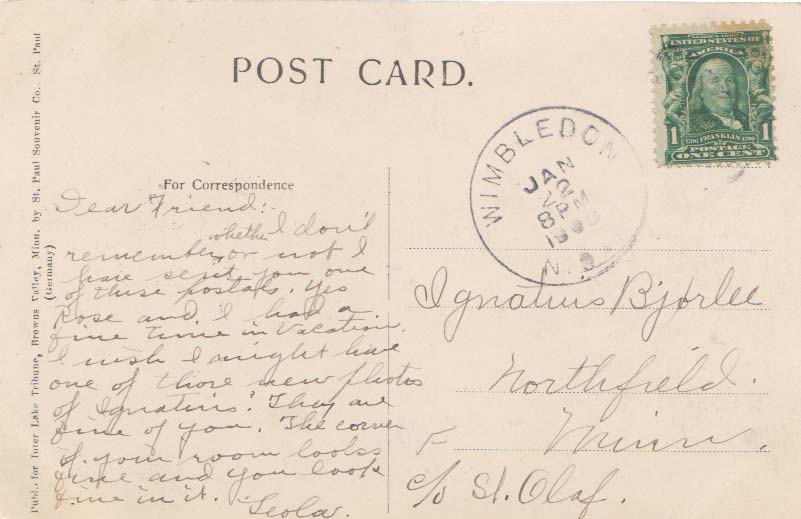 POST CARD.
SERIES 1902
UNITED STATES OF
AMERICA
1 FRANKLIN 1
POSTAGE
ONE CENT
WIMBLEDON
JAN
8 PM
N.D.
For Correspondence
Dear Friend:-
I don't
remember whether or not I
have sent you one
of these postals. Yes
Rose and I had a
fine time in Vacation.
I wish I might have
one of those new photos
of Ignatius. They are
fine of you. The corner
of your room looks
fine and you look
fine in it.
Leola.
Ignatius Bjorlee
Northfield.
Minn.
c/o St. Olaf.
Publ. for Inter Lake Tribune, Browns Valley, Minn. by St. Paul Souvenir Co., St. Paul
(Germany)